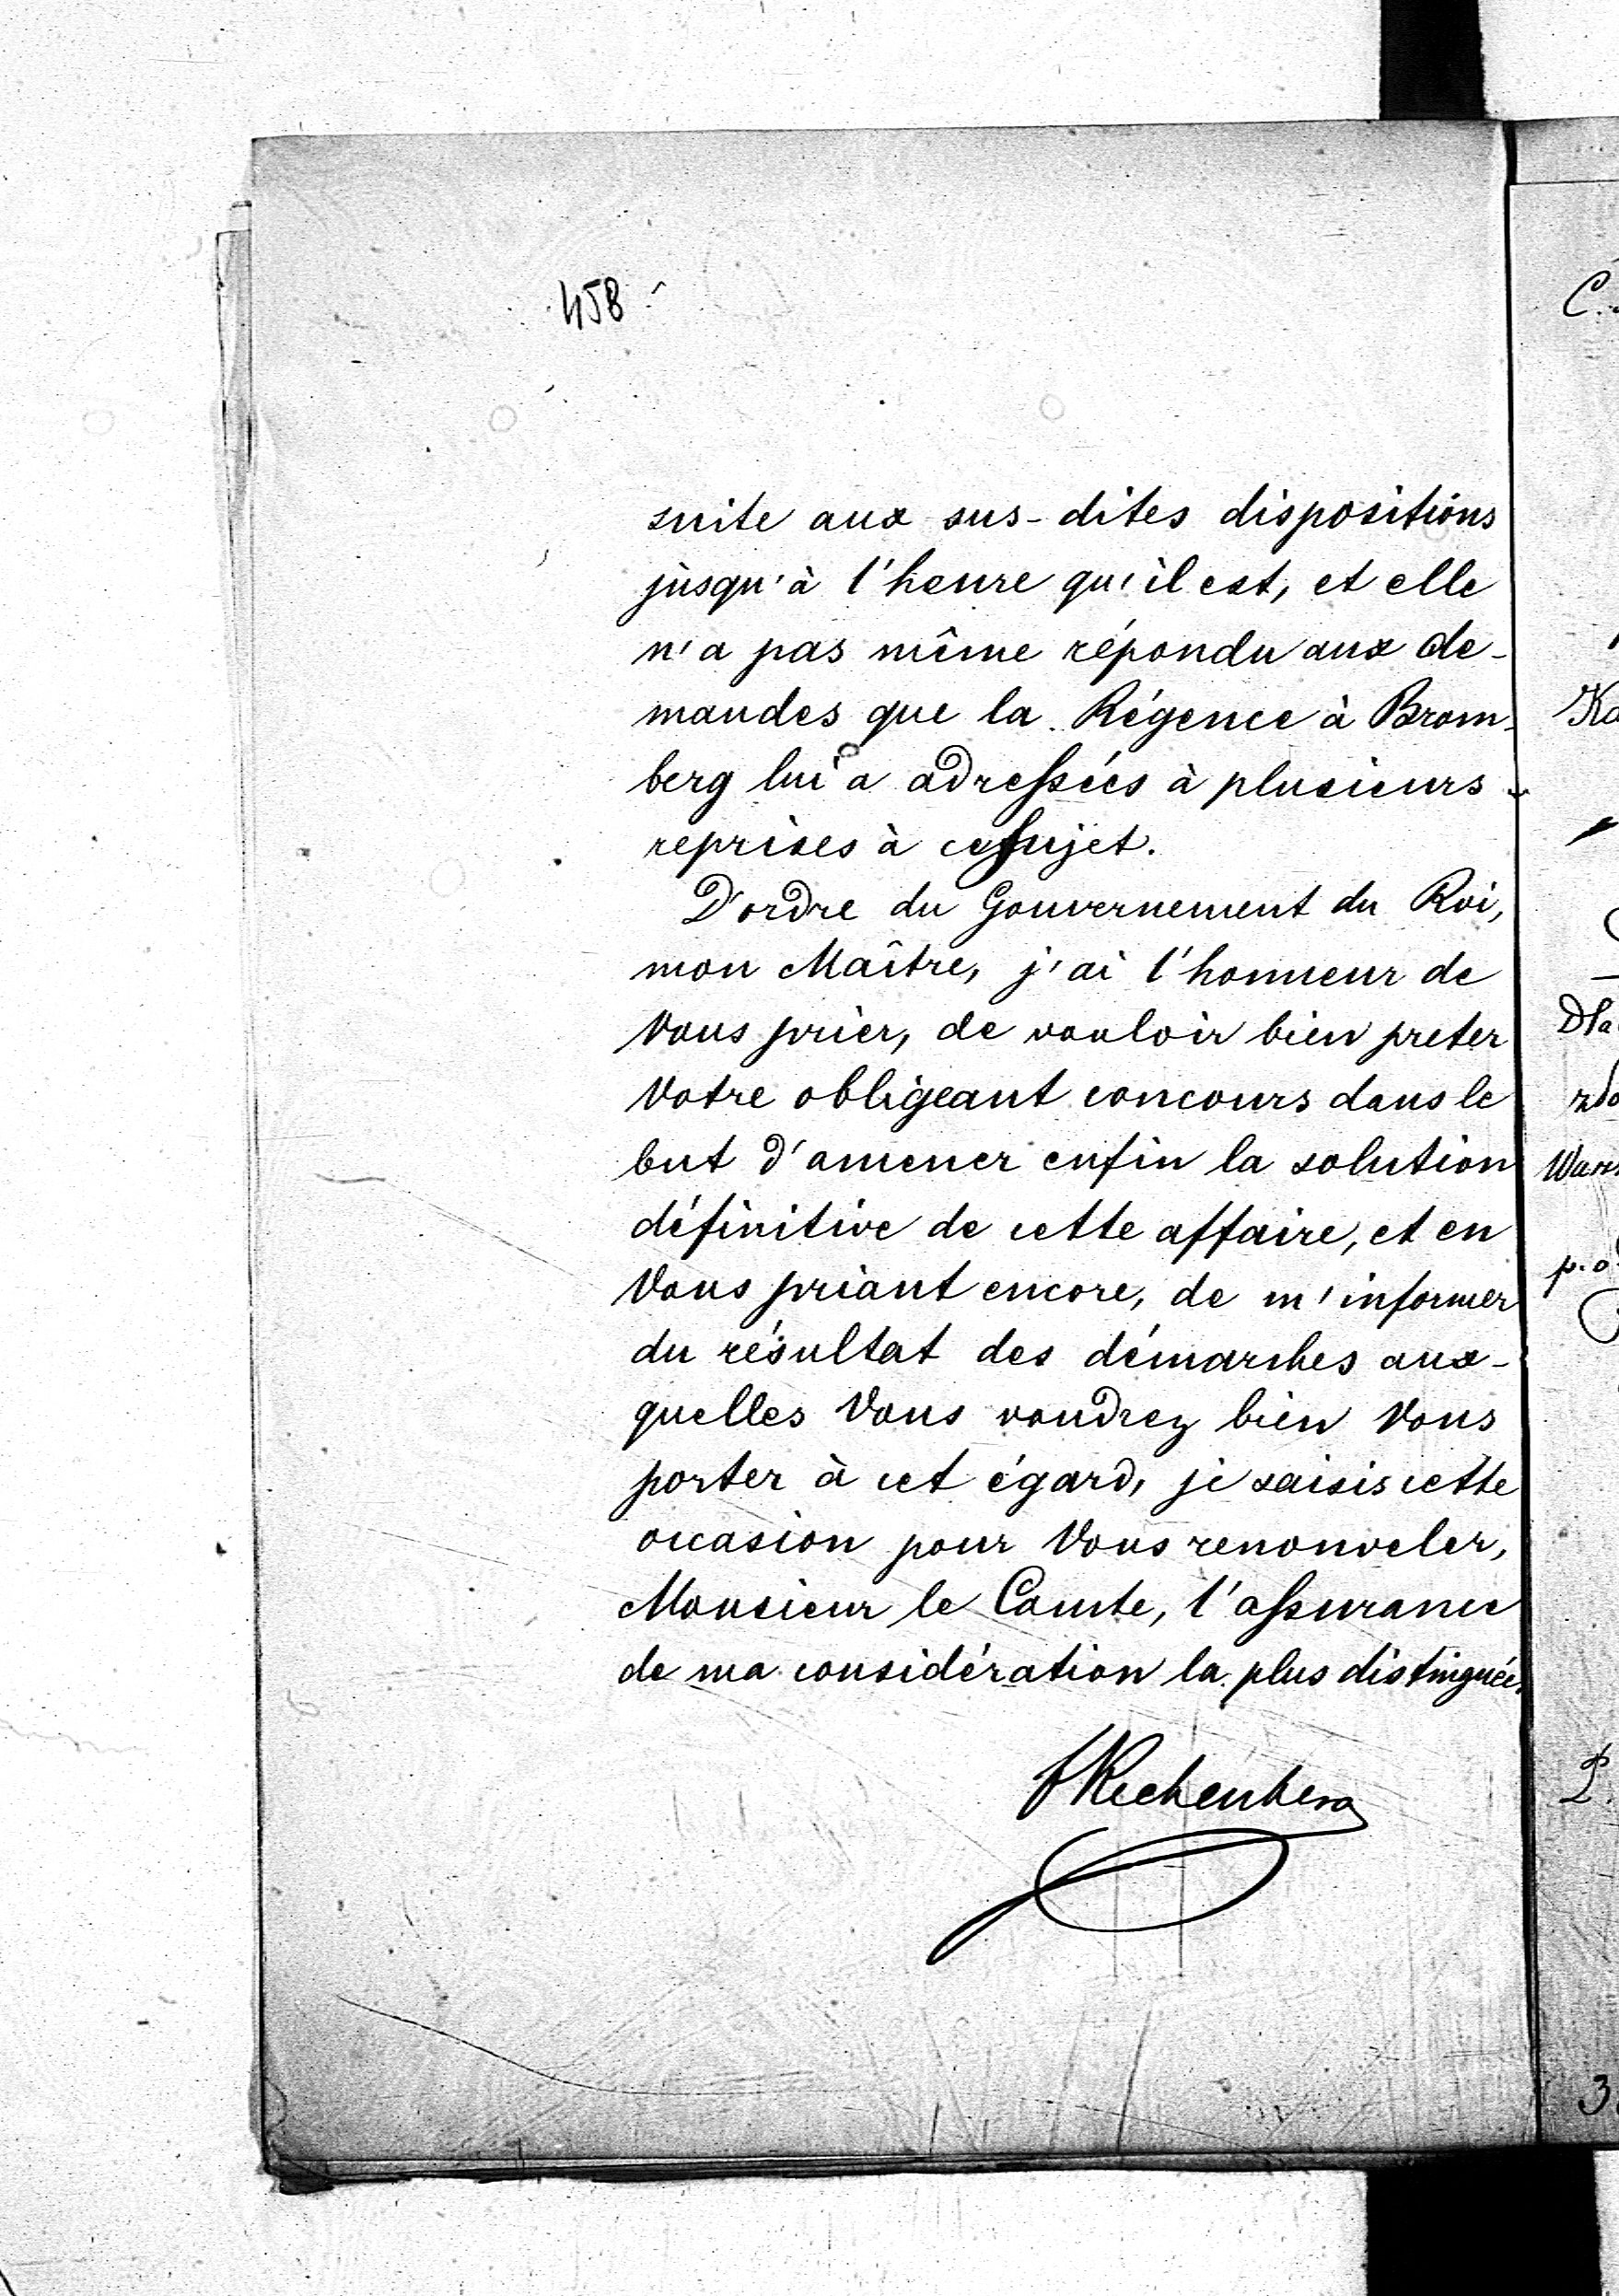 458
suite aux sus-dites dispositions
jusqu'à l'heure qu'il est, et elle
n'a pas même répondu aux de-
mandes que la Régence à Brom-
berg lui a adressées à plusieurs
reprises à ce sujet.
D'ordre du Gouvernement du Roi,
mon Maître, j'ai l'honneur de
Vous prier, de vouloir bien preter
Votre obligeant concours dans le
but d'amener enfin la solution
définitive de cette affaire, et en
Vous priant encore, de m'informer
du résultat des démarches aux-
quelles Vous voudrez bien Vous
porter à cet égard, je saisis cette
occasion pour Vous renouveler,
Monsieur le Comte, l'assurance
de ma considération la plus distinguée.
Rechenberg